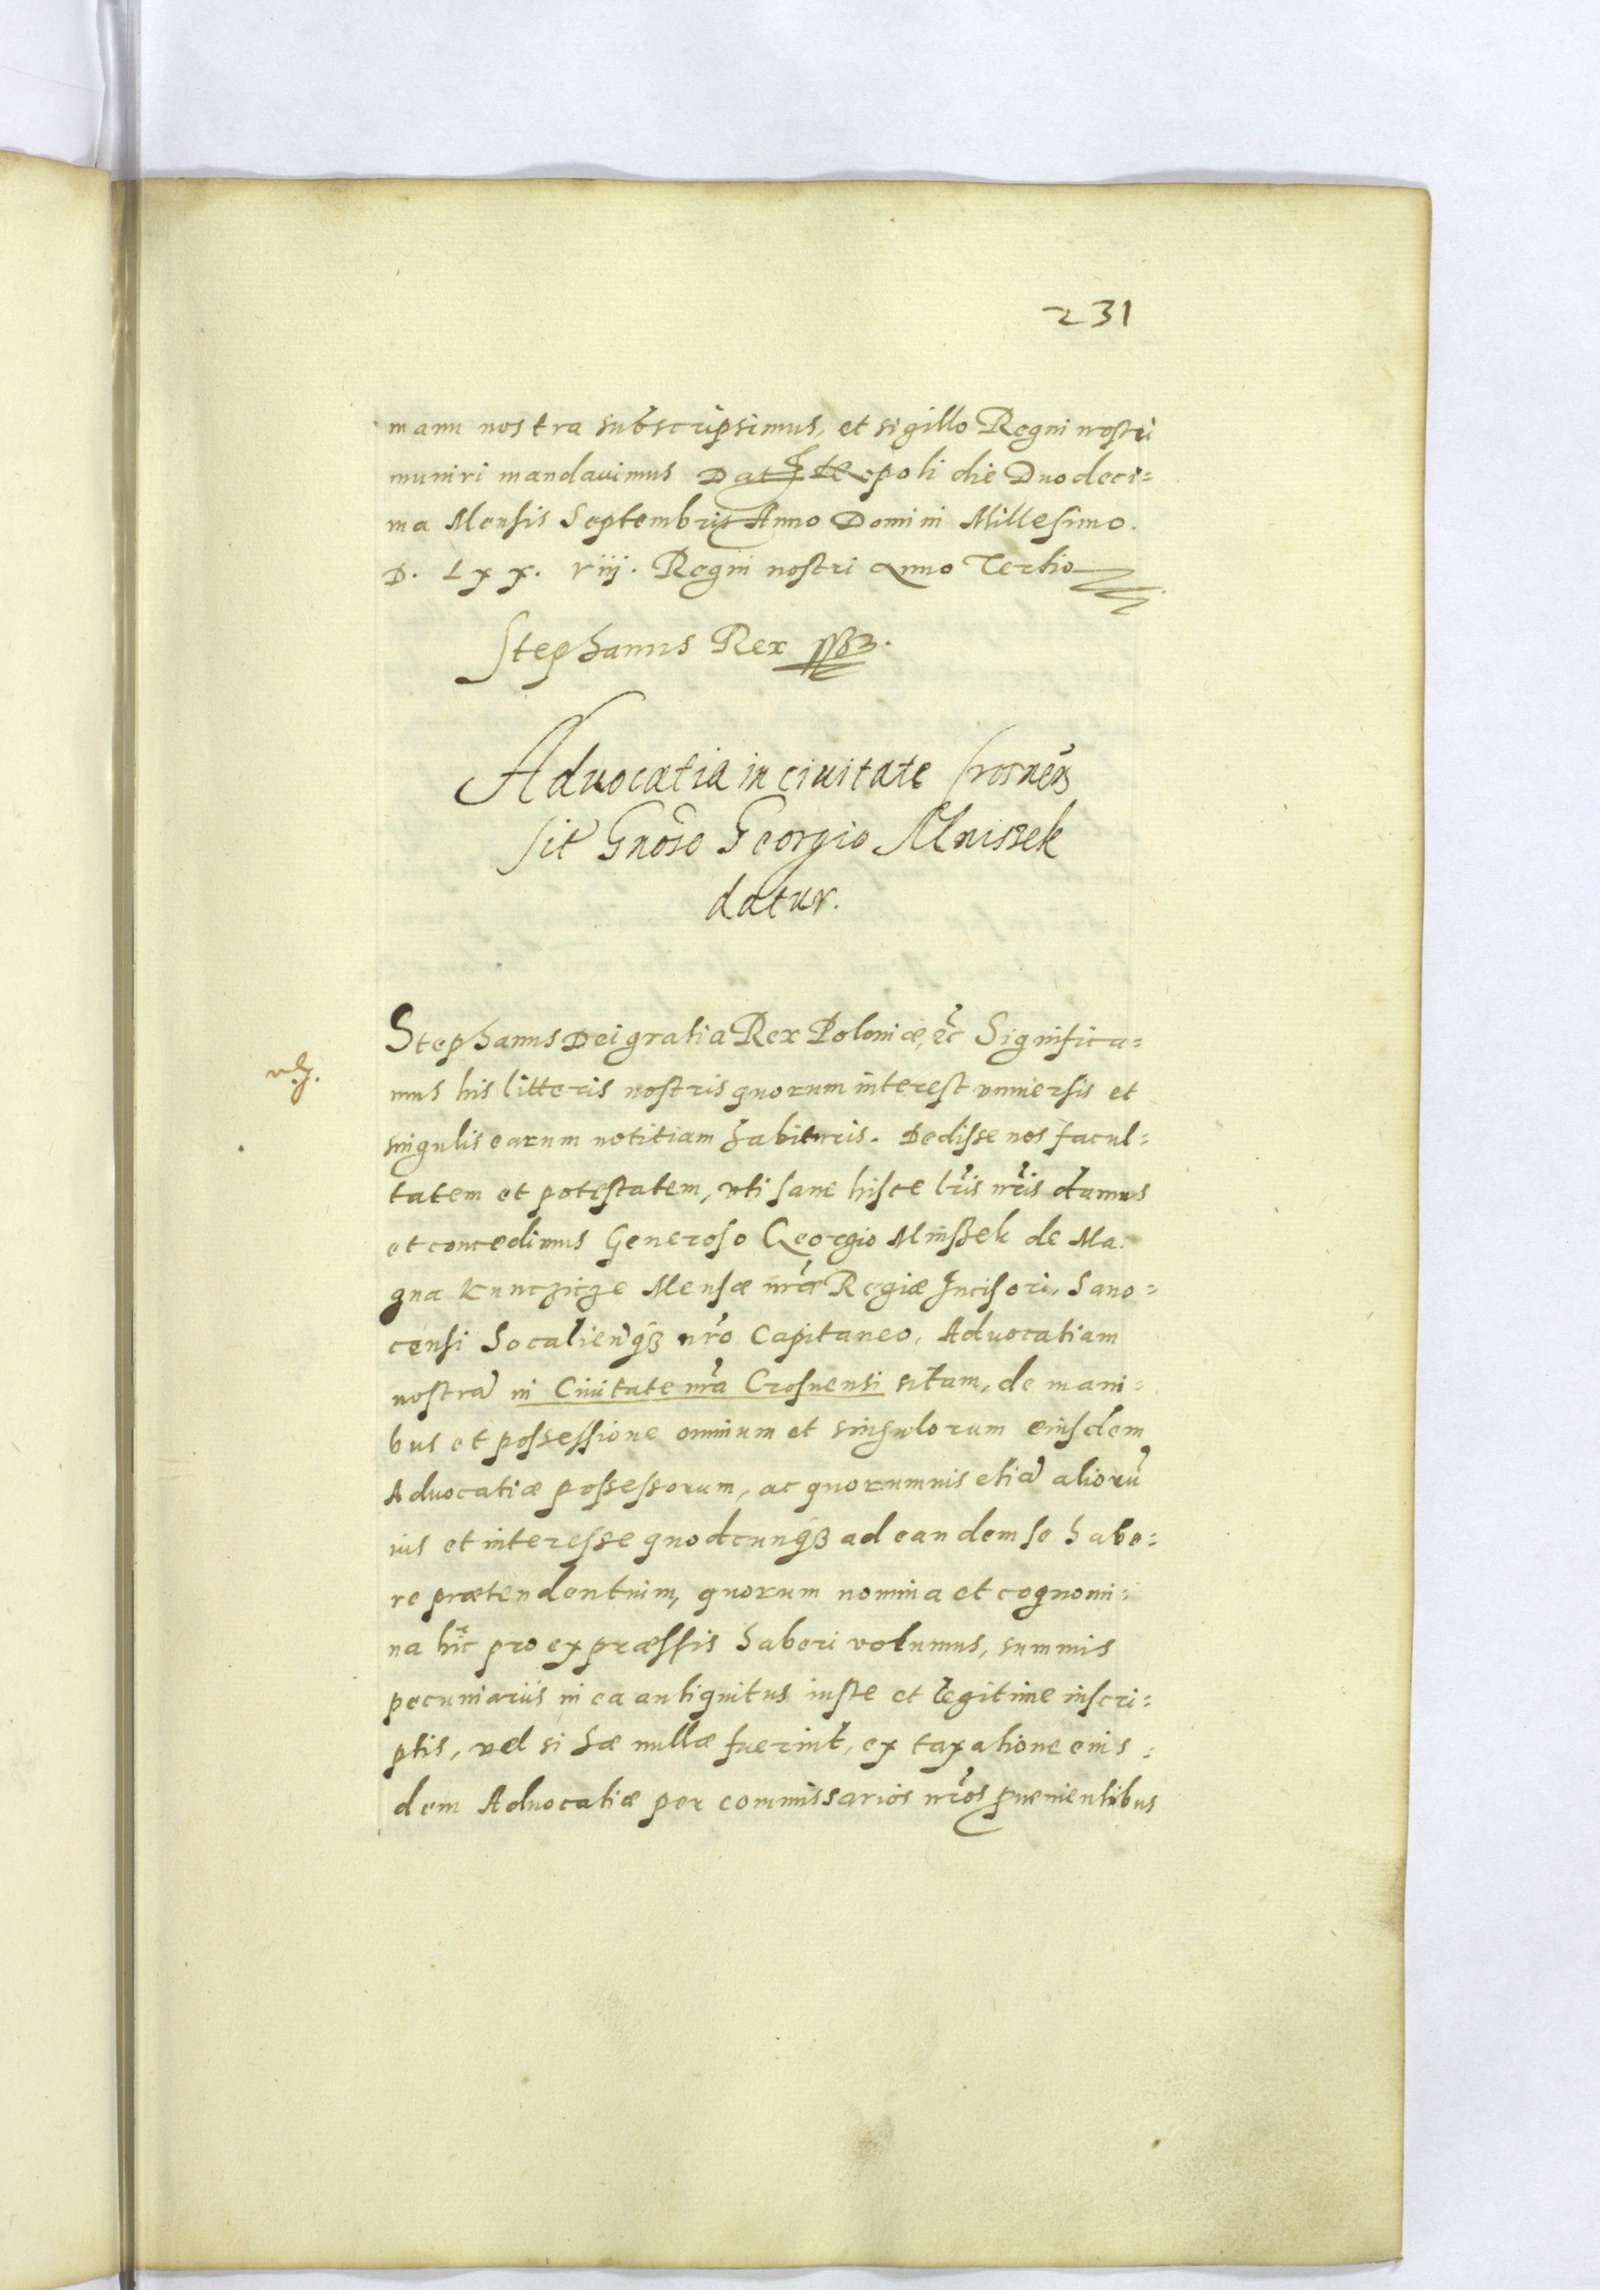 231
manu nostra subscripsimus, et sigillo Regni nostri
muniri mandauimus Dat epoli die Duodeci=
ma Mensis Septembris Anno Domini Millesimo.
D. Lxx. viij. Regni nostri Anno Tertio
Stephanus Rex
Aduocatia in ciuitate Crosnen̄
sit Gnoso Georgio Mnissek
datur.
Stephanus Dei gratia Rex Poloniæ, etc̃ Significa=
mus his litteris nostris quorum interest vniuersis et
singulis earum notitiam habituris. Dedisse nos facul=
tatem et potestatem, uti sane hisce lr̃is nr̃is damus
et concedimus Generoso Georgio Mnissek de Ma.
gna Kunczicze Mensæ nr̃æ Regiæ Incisori, Sano=
censi Socalienqꝫ nr̃o Capitaneo, Aduocatiam
nostrã in Ciuitate nr̃a Crosnensi sitam, de mani=
bus et possessione omnium et singulorum eiusdem
Aduocatiæ possessorum, ac quorumuis etiã aliorũ
ius et interesse quodcunqꝫ ad eandem se habe=
re prætendentium, quorum nomina et cognomi=
na hic pro expræssis haberi volumus, summis
pecuniariis in ea antiquitus iuste et legitime inscri=
ptis, vel si hæ nullæ fuerint, ex taxatione eius=
dem Aduocatiæ per commissarios nr̃os ꝓuenientibus